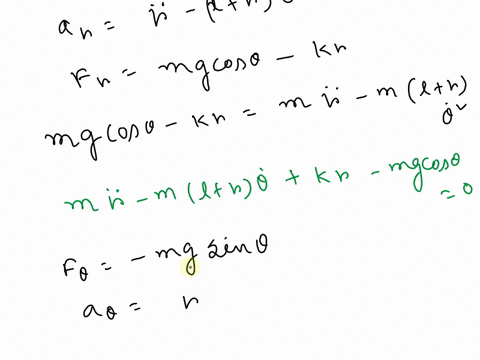 a_r = r̈ - (l+r)
F_r = mg cosθ - kr
mg cosθ - kr = m r̈ - m (l+r) θ̇²
m r̈ - m (l+r) θ̇ + kr - mg cosθ = 0
F_θ = - mg sinθ
a_θ = r